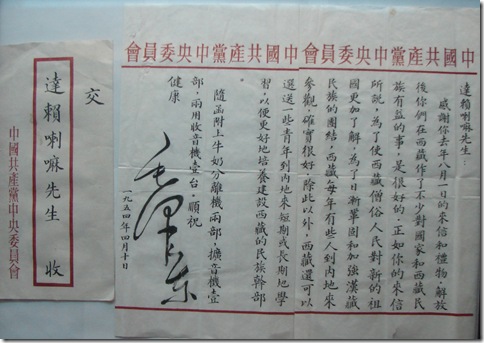 中國共產黨中央委員會
中國共產黨中央委員會
達賴喇嘛先生：
感謝你去年八月一日的來信和禮物。解放
後你們在西藏作了不少對國家和西藏民
族有益的事，是很好的。正如你的來信
所說，為了使西藏僧俗人民對新的祖
國更加了解，為了日漸鞏固和加強漢藏
民族的團結，西藏每年有些人到內地來
參觀，確實很好。除此以外，西藏還可以
選送一些青年到內地來短期或長期地學
習，以便更好地培養建設西藏的民族幹部
隨函附上牛奶分離機兩部，擴音機壹
部，兩用收音機壹台。順祝
健康
毛澤東
一九五四年四月十日
交
達賴喇嘛先生 收
中國共產黨中央委員會